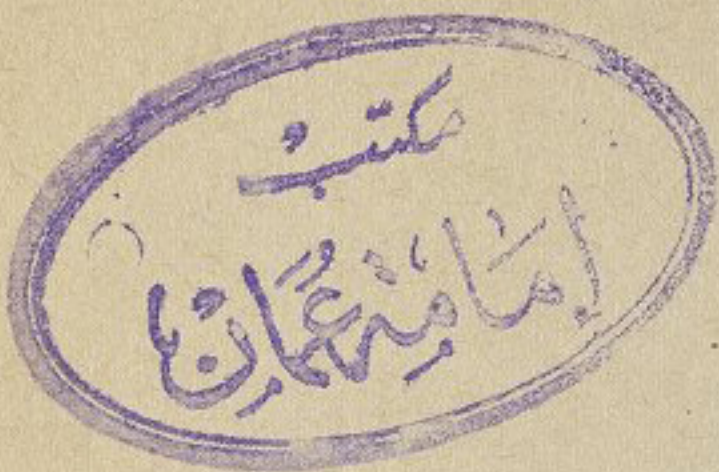 مكتبُ
إمَامَةِ عُمَان